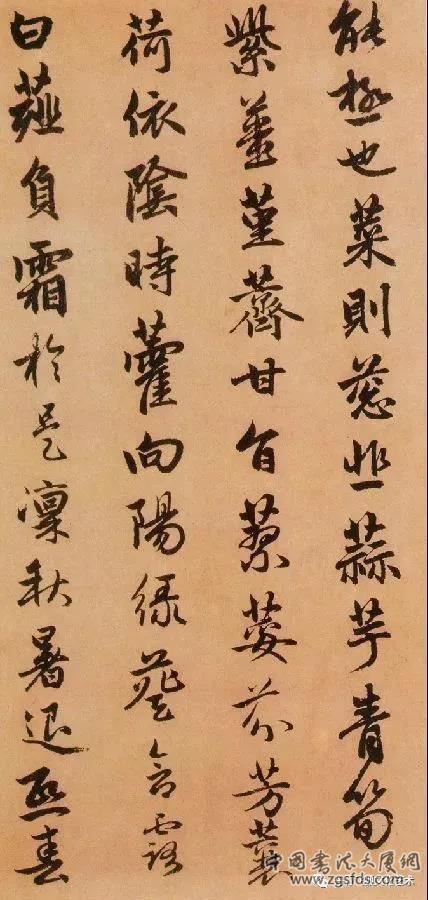 能極也菜則葱韭蒜芋青筍
紫薑堇薺甘旨蓼荽芬芳蘘
荷依陰時藿向陽綠葵含露
白薤負霜於是凜秋暑退熙春
中國書法大廈網
www.zgsfds.com